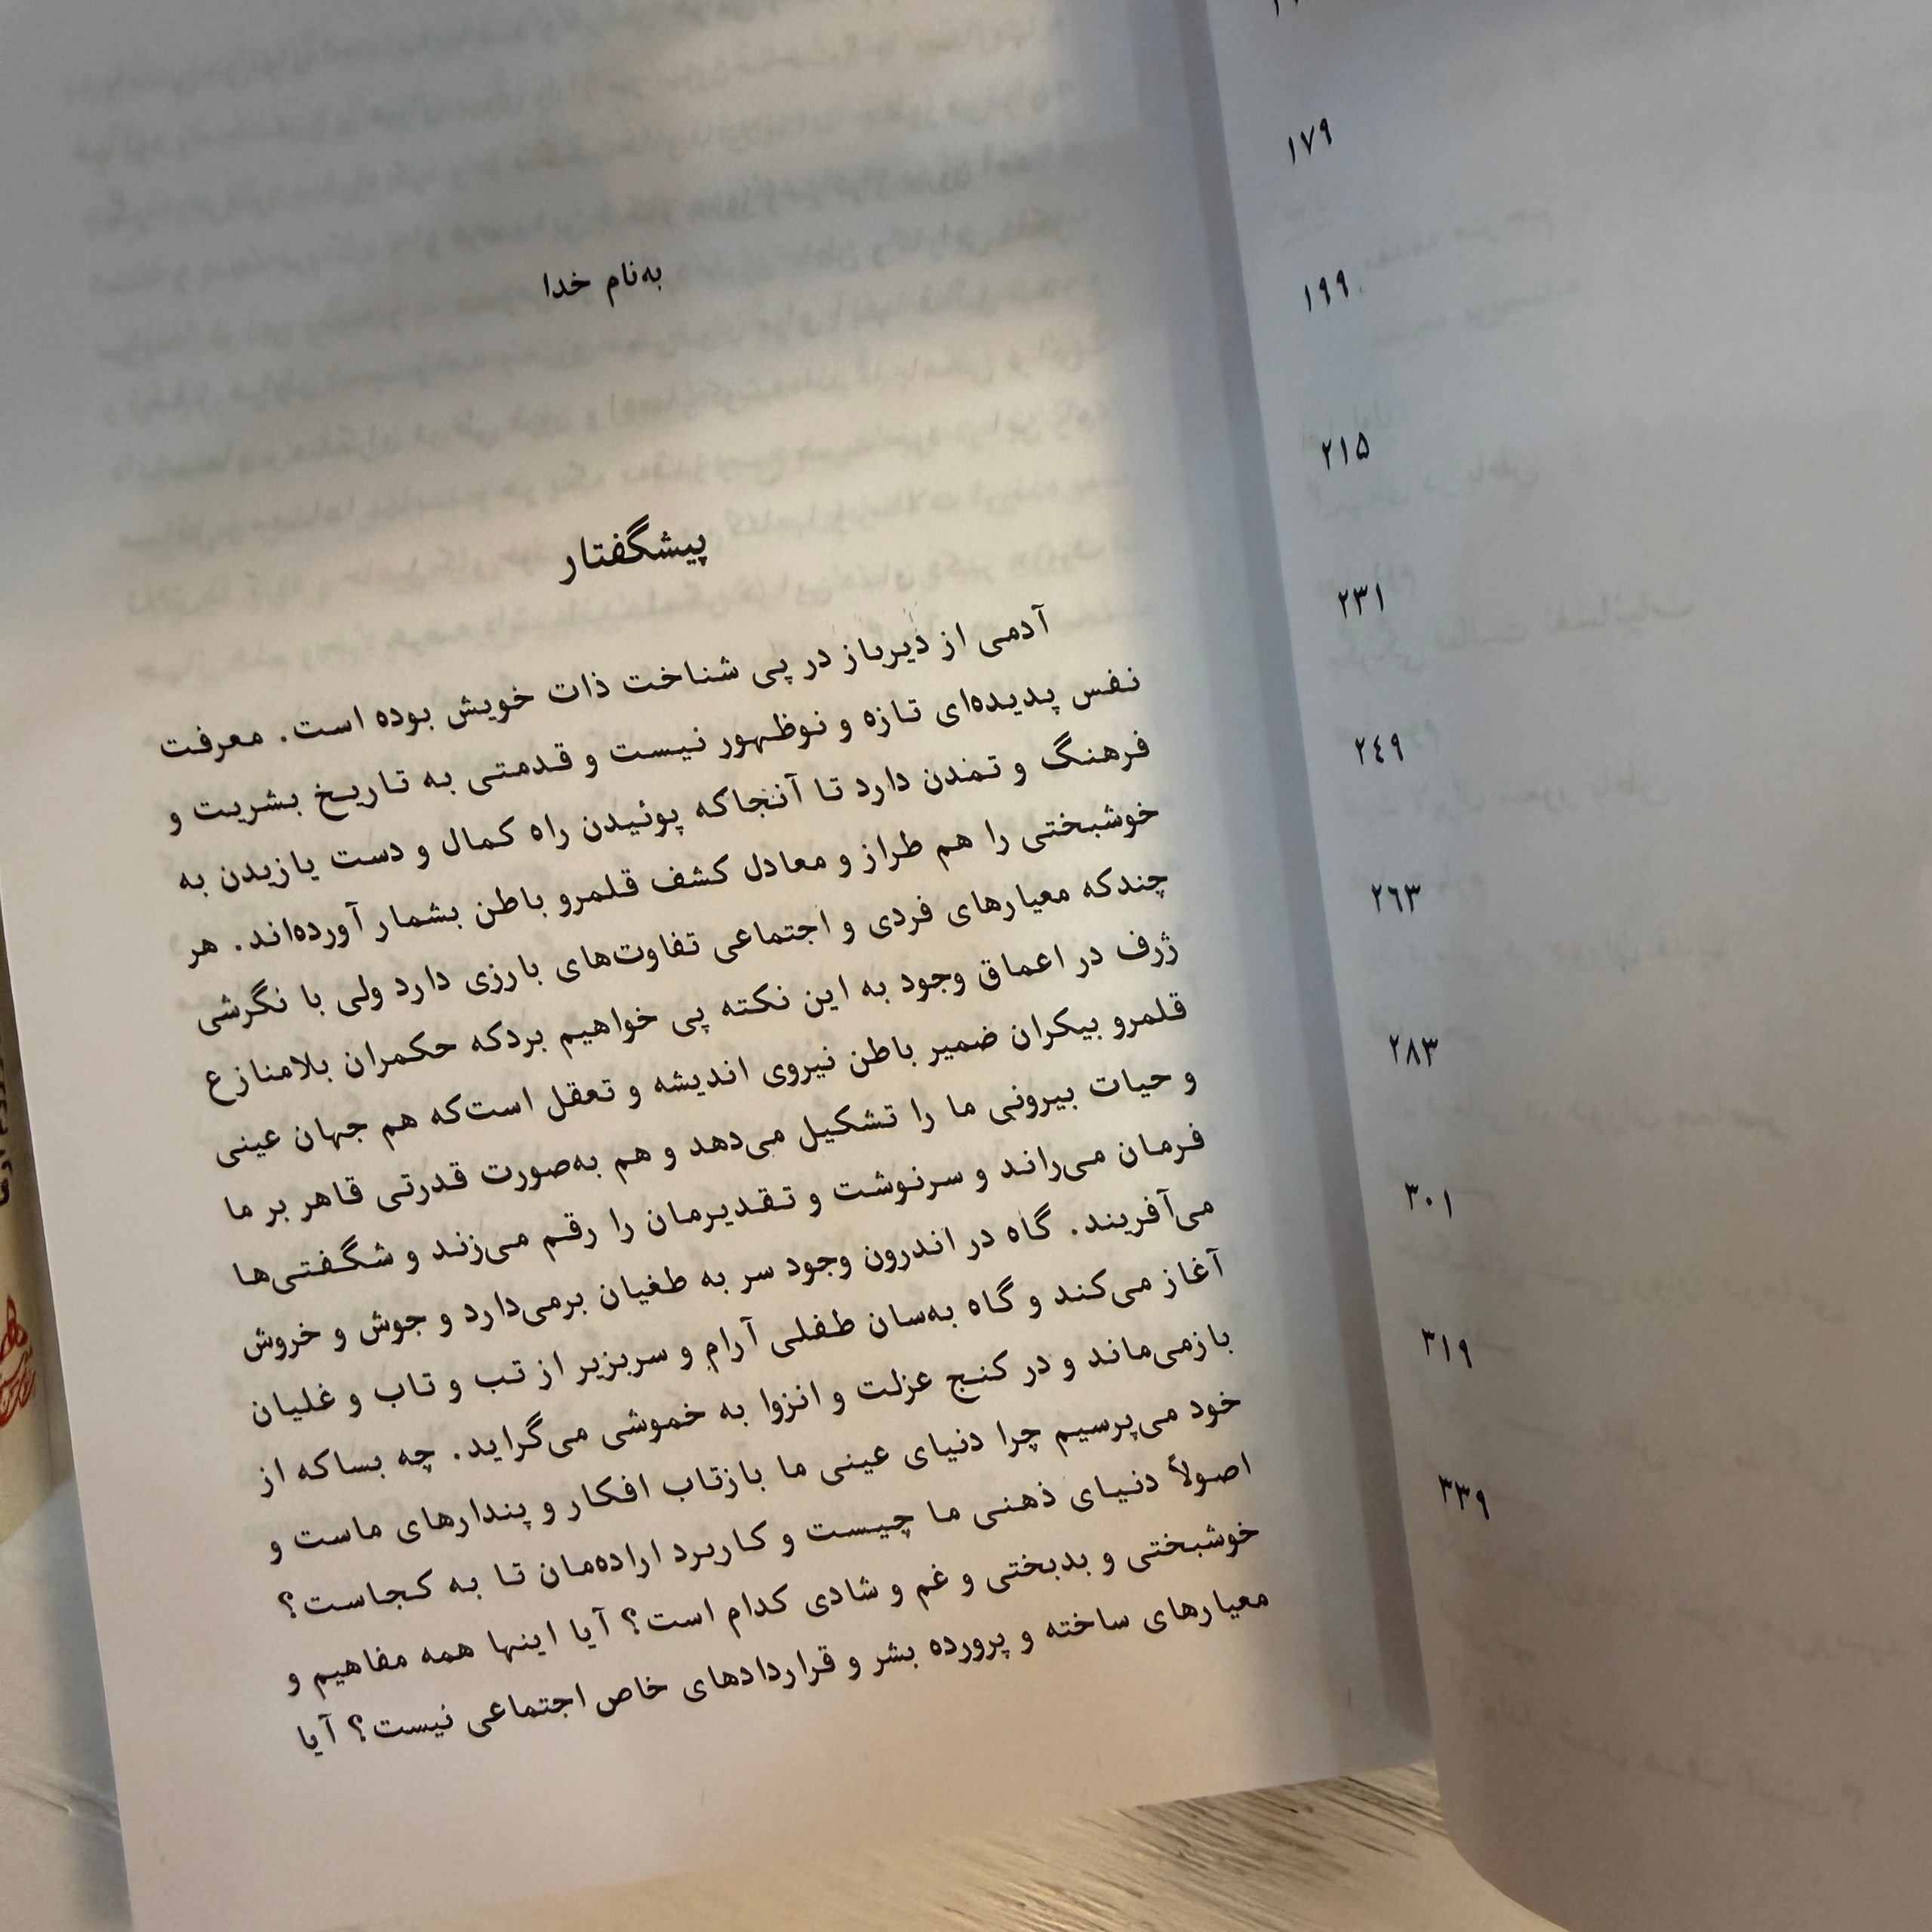 به‌نام خدا
پیشگفتار
آدمی از دیرباز در پی شناخت ذات خویش بوده است. معرفت
نفس پدیده‌ای تازه و نوظهور نیست و قدمتی به تاریخ بشریت و
فرهنگ و تمدن دارد تا آنجاکه پوئیدن راه کمال و دست یازیدن به
خوشبختی را هم طراز و معادل کشف قلمرو باطن بشمار آورده‌اند. هر
چندکه معیارهای فردی و اجتماعی تفاوت‌های بارزی دارد ولی با نگرشی
ژرف در اعماق وجود به این نکته پی خواهیم بردکه حکمران بلامنازع
قلمرو بیکران ضمیر باطن نیروی اندیشه و تعقل است‌که هم جهان عینی
و حیات بیرونی ما را تشکیل می‌دهد و هم به‌صورت قدرتی قاهر بر ما
فرمان می‌راند و سرنوشت و تقدیرمان را رقم می‌زند و شگفتی‌ها
می‌آفریند. گاه در اندرون وجود سر به طغیان برمی‌دارد و جوش و خروش
آغاز می‌کند و گاه به‌سان طفلی آرام و سربزیر از تب و تاب و غلیان
بازمی‌ماند و در کنج عزلت و انزوا به خموشی می‌گراید. چه بساکه از
خود می‌پرسیم چرا دنیای عینی ما بازتاب افکار و پندارهای ماست و
اصولاً دنیای ذهنی ما چیست و کاربرد اراده‌مان تا به کجاست؟
خوشبختی و بدبختی و غم و شادی کدام است؟ آیا اینها همه مفاهیم و
معیارهای ساخته و پرورده بشر و قراردادهای خاص اجتماعی نیست؟ آیا
۱۷۹
۱۹۹
۲۱۵
۲۳۱
۲٤۹
۲٦۳
۲۸۳
۳۰۱
۳۱۹
۳۳۹